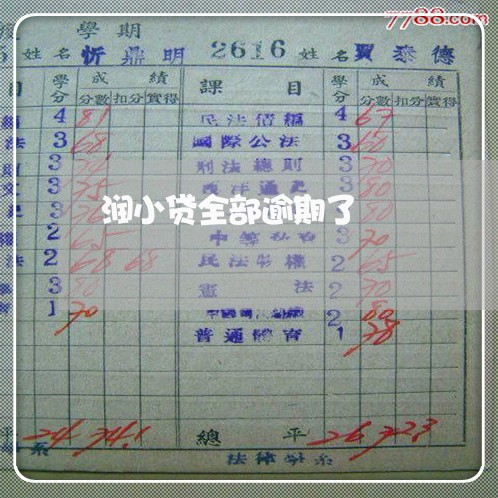 7788.com
學期
姓名 忻鼎明 2616 姓名 賈泰德
目 學分 成績 課目 學分 成績
分數 扣分 實得 分數 扣分 實得
4 81 民法債編 4 67
法 3 68 國際公法 3 60
3 刑法總則 3 70
3 75 西洋通史 3 80
润小贷全部逾期了
3
2 65 3 70
法 2 68 68 民法物權 2 65
3 80 憲法 2 70
1 70 2 80
普通體育 1 78
平 24 74.1 總平 26 72.3
系 法律學系